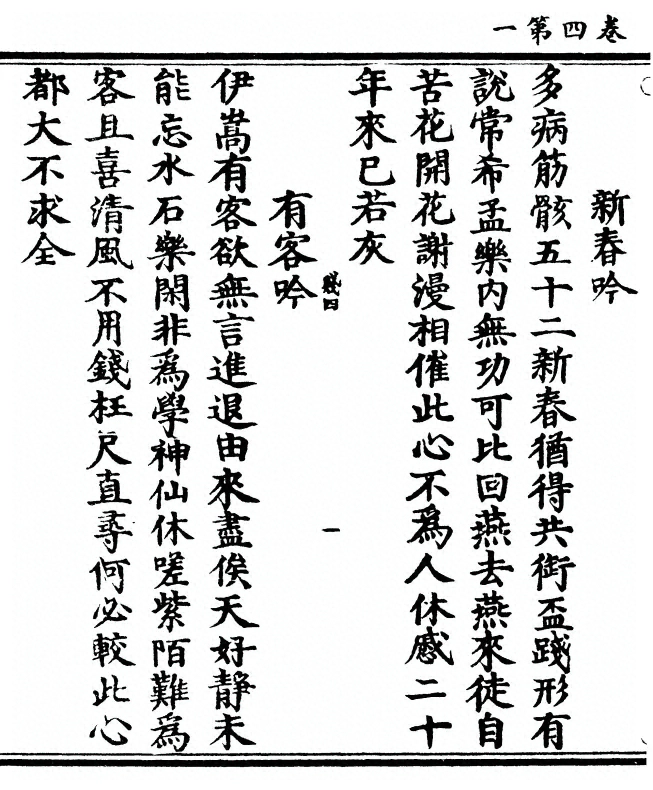 卷四第一
新春吟
多病筋骸五十二新春猶得共銜盃踐形有
說常希孟樂內無功可比回燕去燕來徒自
苦花開花謝漫相催此心不爲人休慼二十
年來已若灰
有客吟
伊嵩有客欲無言進退由來盡俟天好靜未
能忘水石樂閑非爲學神仙休嗟紫陌難爲
客且喜清風不用錢枉尺直尋何必較此心
都大不求全
一